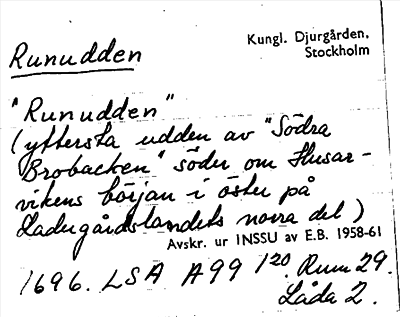 Runudden
Kungl. Djurgården,
Stockholm
"Runudden"
(yttersta udden av "Södra
Brobacken" söder om Husar-
vikens början i öster på
Ladugårdslandets norra del)
Avskr. ur INSSU av E.B. 1958-61
1696. LSA A99 1²⁰. Rum 29.
Låda 2.